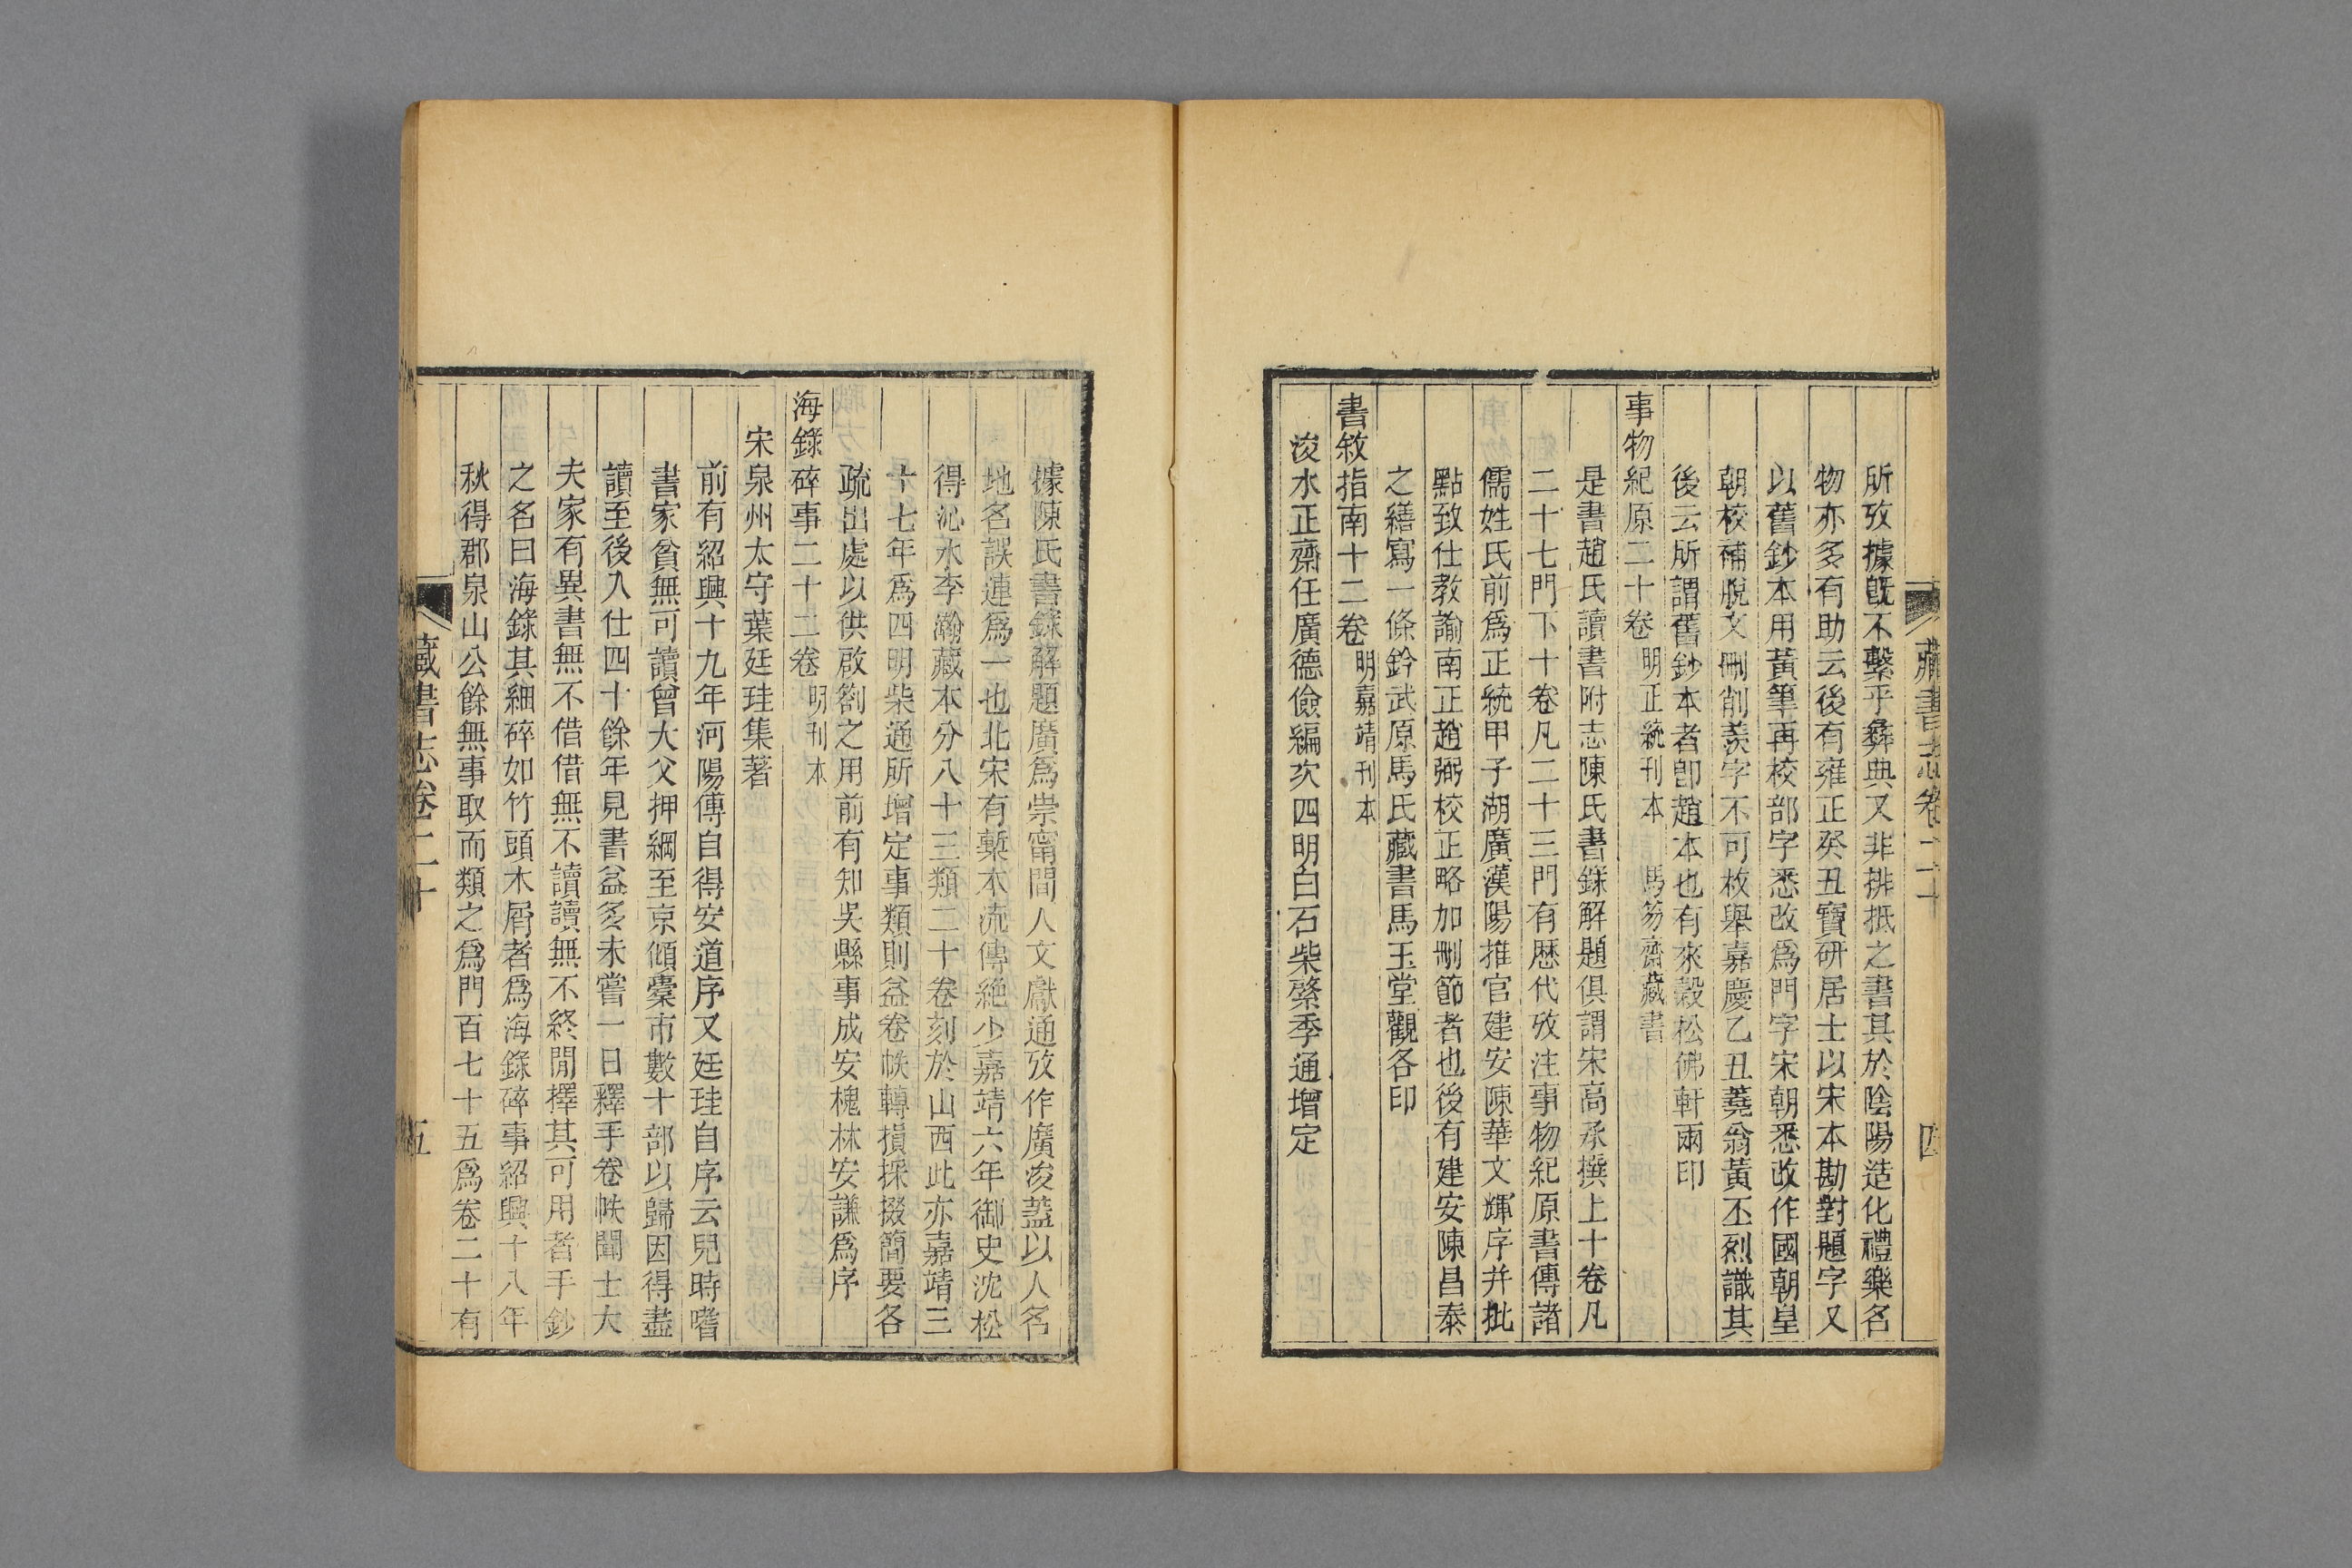 藏書志卷二十
四
所攷據旣不繫乎彝典又非排抵之書其於陰陽造化禮樂名
物亦多有助云後有雍正癸丑寶研居士以宋本勘對題字又
以舊鈔本用黃筆再校部字悉改爲門字宋朝悉改作國朝皇
朝校補脫文刪削羨字不可枚舉嘉慶乙丑蕘翁黃丕烈識其
後云所謂舊鈔本者卽趙本也有來穀松佛軒兩印
事物紀原二十卷 明正統刊本 馬笏齋藏書
是書趙氏讀書附志陳氏書錄解題俱謂宋高承撰上十卷凡
二十七門下十卷凡二十三門有歷代攷注事物紀原書傳諸
儒姓氏前爲正統甲子湖廣漢陽推官建安陳華文輝序并批
點致仕教諭南正趙弼校正略加刪節者也後有建安陳昌泰
之繕寫一條鈐武原馬氏藏書馬玉堂觀各印
書敘指南十二卷 明嘉靖刊本
浚水正齋任廣德儉編次四明白石柴棨季通增定
據陳氏書錄解題廣爲崇甯間人文獻通攷作廣浚蓋以人名
地名誤連爲一也北宋有槧本流傳絕少嘉靖六年御史沈松
得沁水李瀚藏本分八十三類二十卷刻於山西此亦嘉靖三
十七年爲四明柴通所增定事類則益卷帙轉損採掇簡要各
疏出處以供啟劄之用前有知吳縣事成安槐林安謙爲序
海錄碎事二十二卷 明刊本
宋泉州太守葉廷珪集著
前有紹興十九年河陽傅自得安道序又廷珪自序云兒時嗜
書家貧無可讀曾大父押綱至京傾橐市數十部以歸因得盡
讀至後入仕四十餘年見書益多未嘗一日釋手卷帙聞士大
夫家有異書無不借借無不讀讀無不終閒擇其可用者手鈔
之名曰海錄其細碎如竹頭木屑者爲海錄碎事紹興十八年
秋得郡泉山公餘無事取而類之爲門百七十五爲卷二十有
藏書志卷二十
五